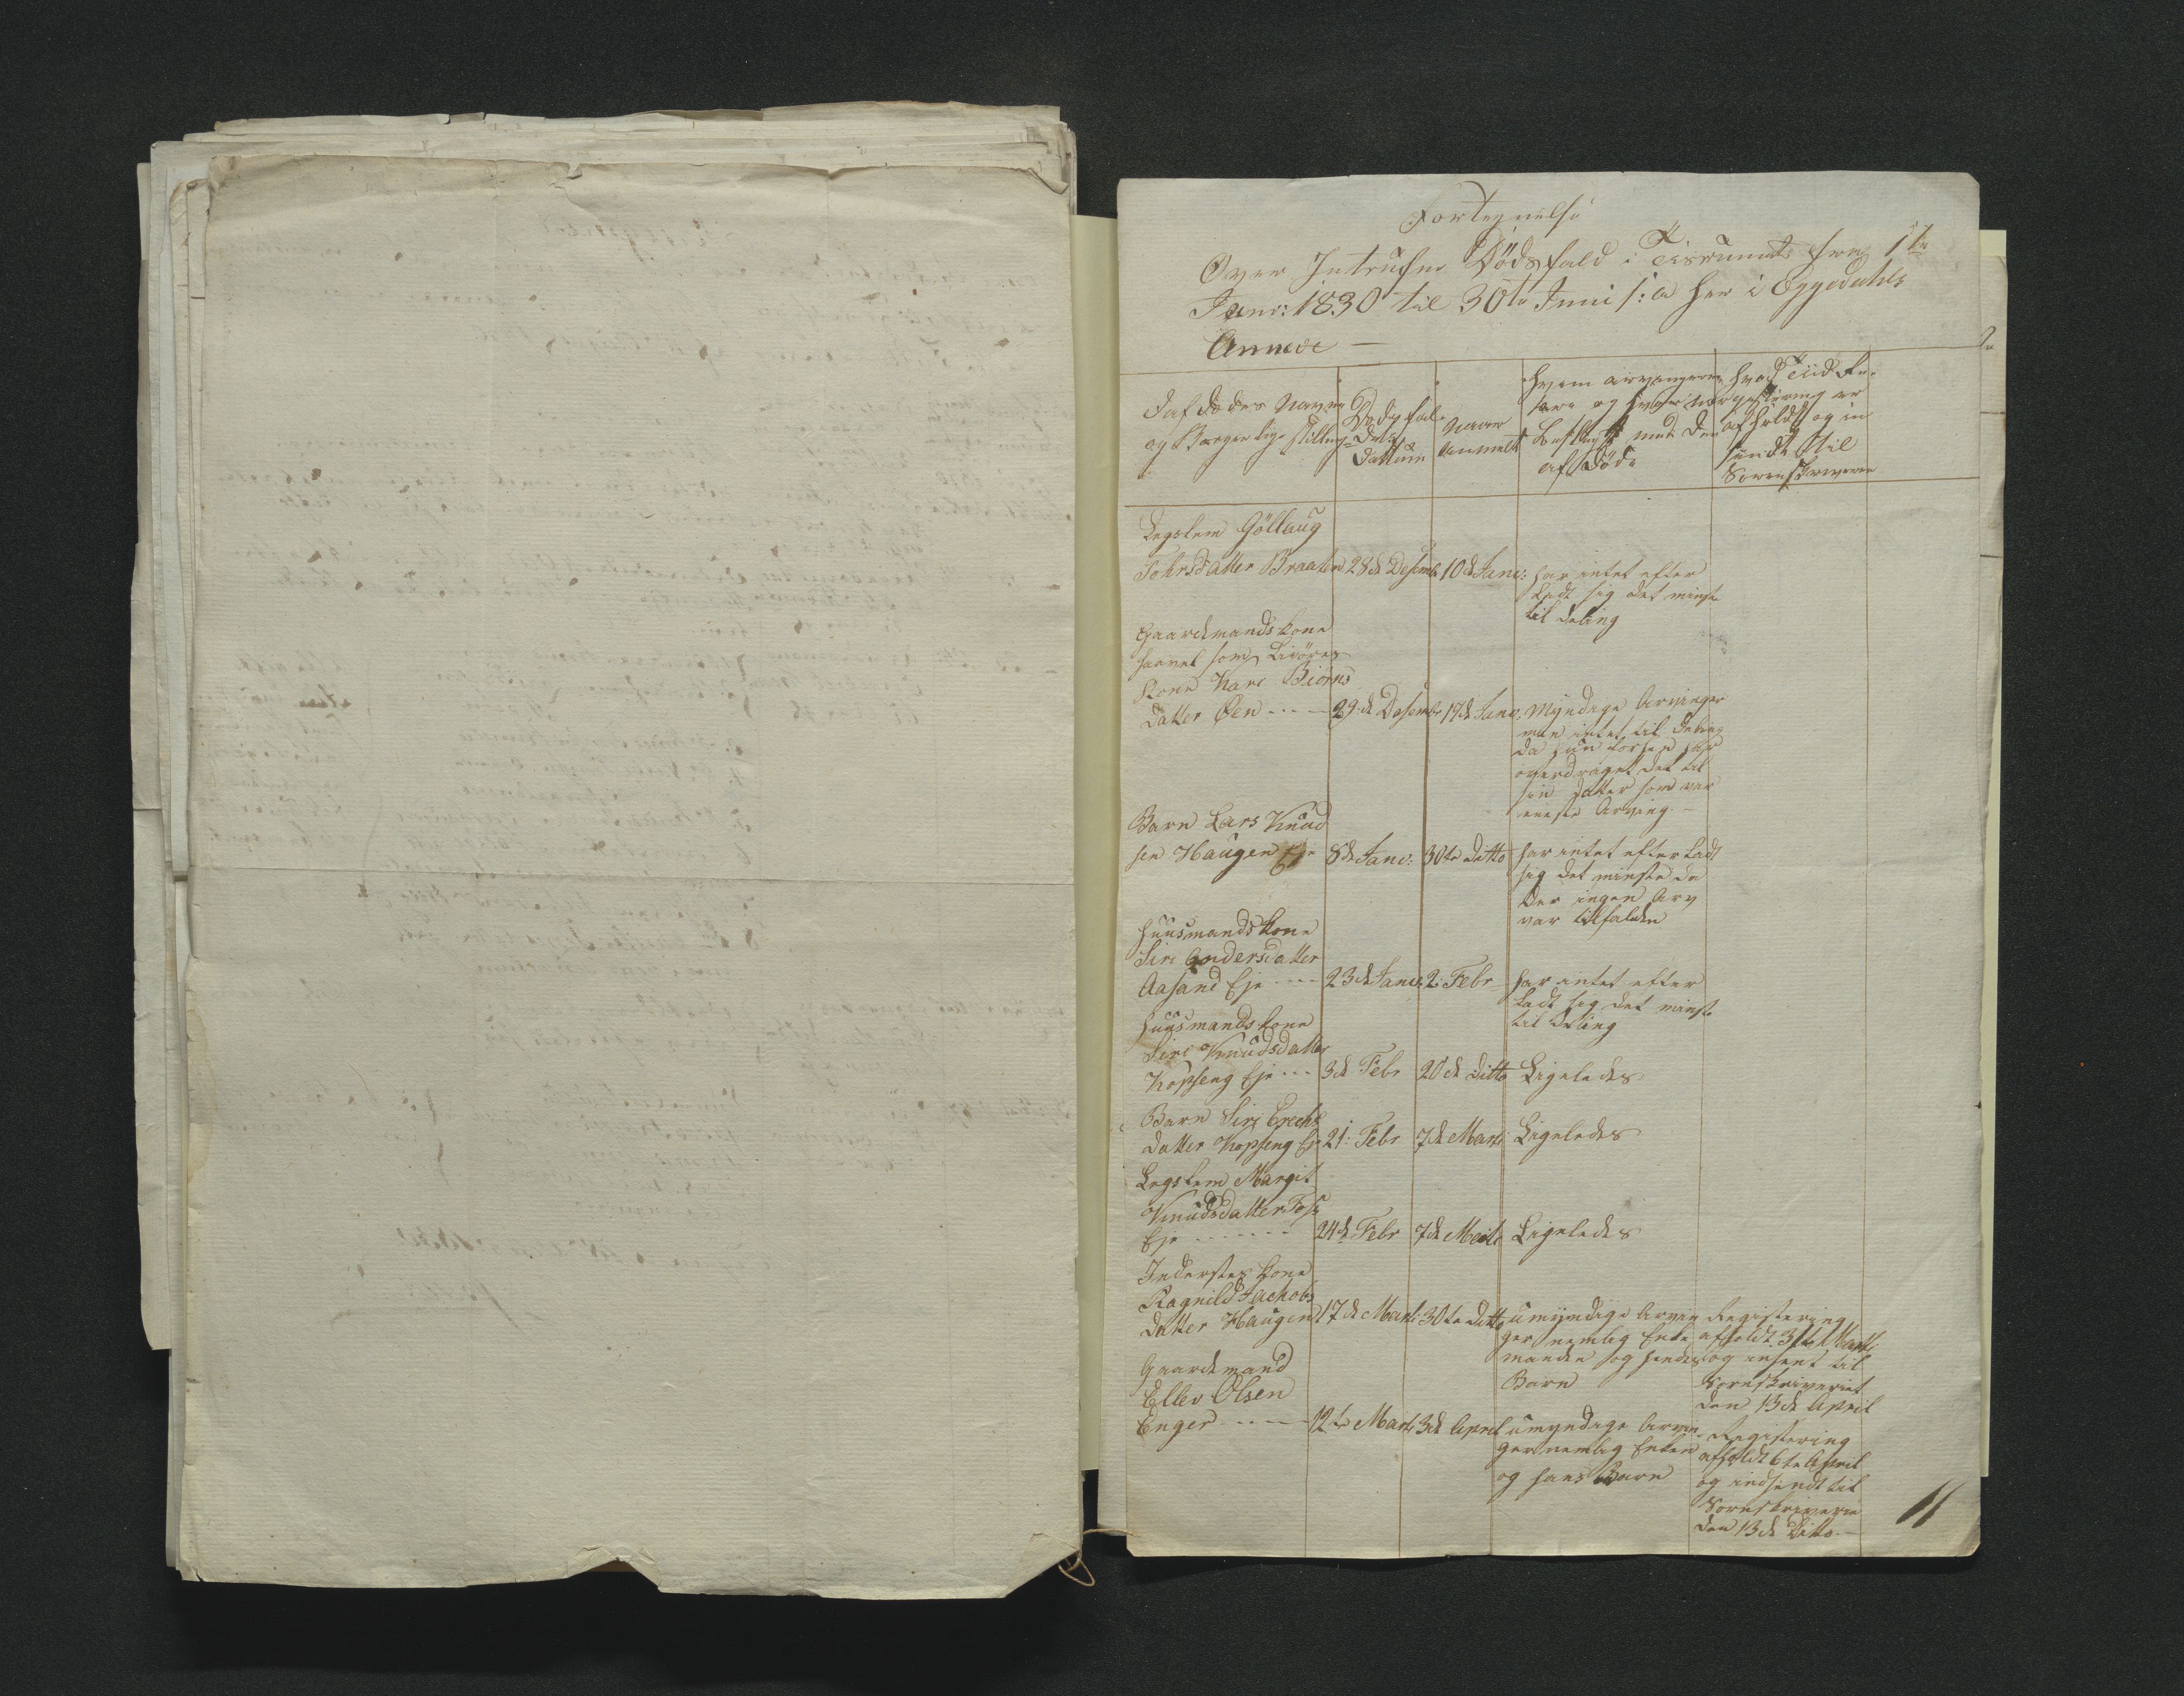 Fortegnelse
Over Intrufne Dödsfald i Tisrumet fra 1te
Janr: 1830 til 30te Juni s: a her i Eggedahls
Annæx —
Dafdödes Navne
og Borgerlige stilling
Dödsfal-
dets
Dattum
Naar
anmelt
Hvem arvingerne
ere og hvor nær
Beslægt med den
afdöde
Hvad Tiid Re-
gistering er
afholdt og in
sendt til
Sorenskriveren
Legslem Göllaug
Tohrsdatter Braaten 28de Desembr 10de Janu: har intet efter
Ladt sig det minste
til deling
Gaardmandskone
saavel som Livöres
Kone Kari Biörns
datter Øen ---- 29de Desembr 17de Janu. Myndige Arvinger
men intet til Deling
da hun forhen har
overdraget det til
sin datter som var
eneste Arving. —
Barn Lars Knud
sen Haugen Eje 8de Janu: 30te ditto har intet efterladt
sig det minste da
der ingen Arv
var tilfalden
Huusmandskone
Siri Andersdatter
Aasand Eje ---- 23de Janu. 2: Febr har intet efter
ladt sig det minste
til deling
Huusmandskone
Siri Knudsdatter
Kopseng Eje --- 3de Febr 20de ditto Ligeledes
Barn Siri Erechs
datter Kopseng Eje 21: Febr 7de Marti Ligeledes
Legslem Margit
Knudsdatter
Eje ------- 24de Febr 7de Marti Ligeledes
Inderstes kone
Ragnild Jachobs
datter Haugen 17de Marti 30te ditto umyndige Arvin
ger nemlig Enke
manden og hendes
Barn
Registering
afholdt 31te Marti
og insent til
Sornskriveriet
den 13de April
Gaardmand
Ellev Olsen
Enger ---- 12te Marti 3de April umyndige Arvin-
ger nemlig Enken
og hans Barn
Registering
afholdt 6te April
og indsendt til
Sornskriveren
den 13de Ditto. —
11